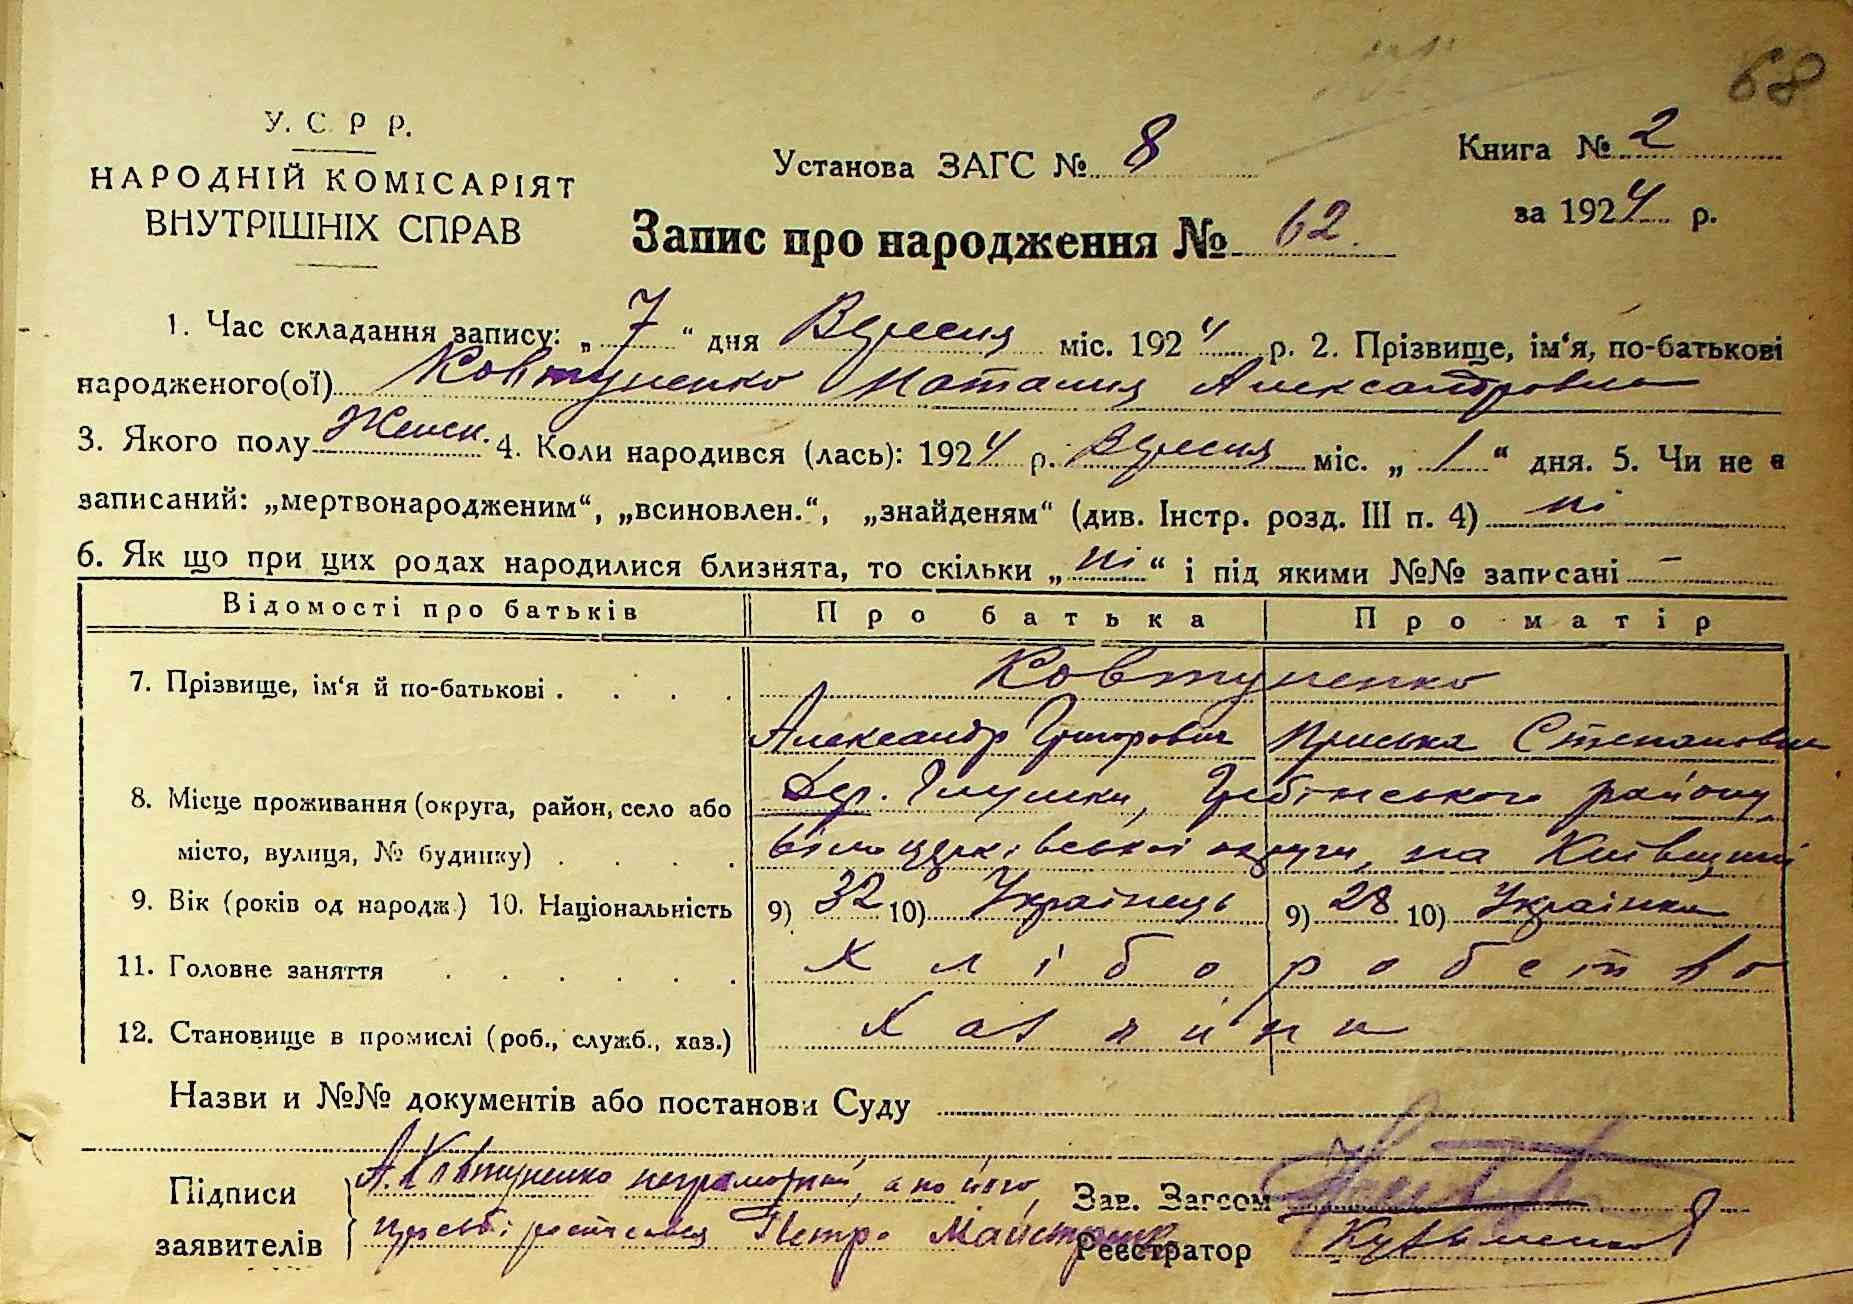 68
У. С. Р. Р.
НАРОДНІЙ КОМІСАРІЯТ
ВНУТРІШНІХ СПРАВ
Установа ЗАГС № 8
Книга № 2
за 1924 р.
Запис про народження № 62
1. Час складання запису: „7“ дня Вересня міс. 1924 р. 2. Прізвище, ім‘я, по-батькові
народженого(ої) Ковтуненко Наталия Александровна
3. Якого полу Женск. 4. Коли народився (лась): 1924 р. Вересня міс. „1“ дня. 5. Чи не є
записаний: „мертвонародженим“, „всиновлен.“, „знайденям“ (див. Інстр. розд. III п. 4) ні
6. Як що при цих родах народилися близнята, то скільки „ні“ і під якими №№ записані –
Відомості про батьків Про батька Про матір
7. Прізвище, ім‘я й по-батькові . . . . Ковтуненко
Александр Григорович Приська Степановна
8. Місце проживання (округа, район, село або Дер. Глушки, Гребінського району
місто, вулиця, № будинку) . . . . Білоцерківської округи, на Київщині
9. Вік (років од народж.) 10. Національність 9) 32 10) Українець 9) 28 10) Українка
11. Головне заняття . . . . . Хліборобство
12. Становище в промислі (роб., служб., хаз.) Хазяйни
Назви и №№ документів або постанови Суду
Підписи А. Ковтуненко неграмотний, а по його Зав. Загсом
заявителів просьбі Петро Реєстратор Кузьменко